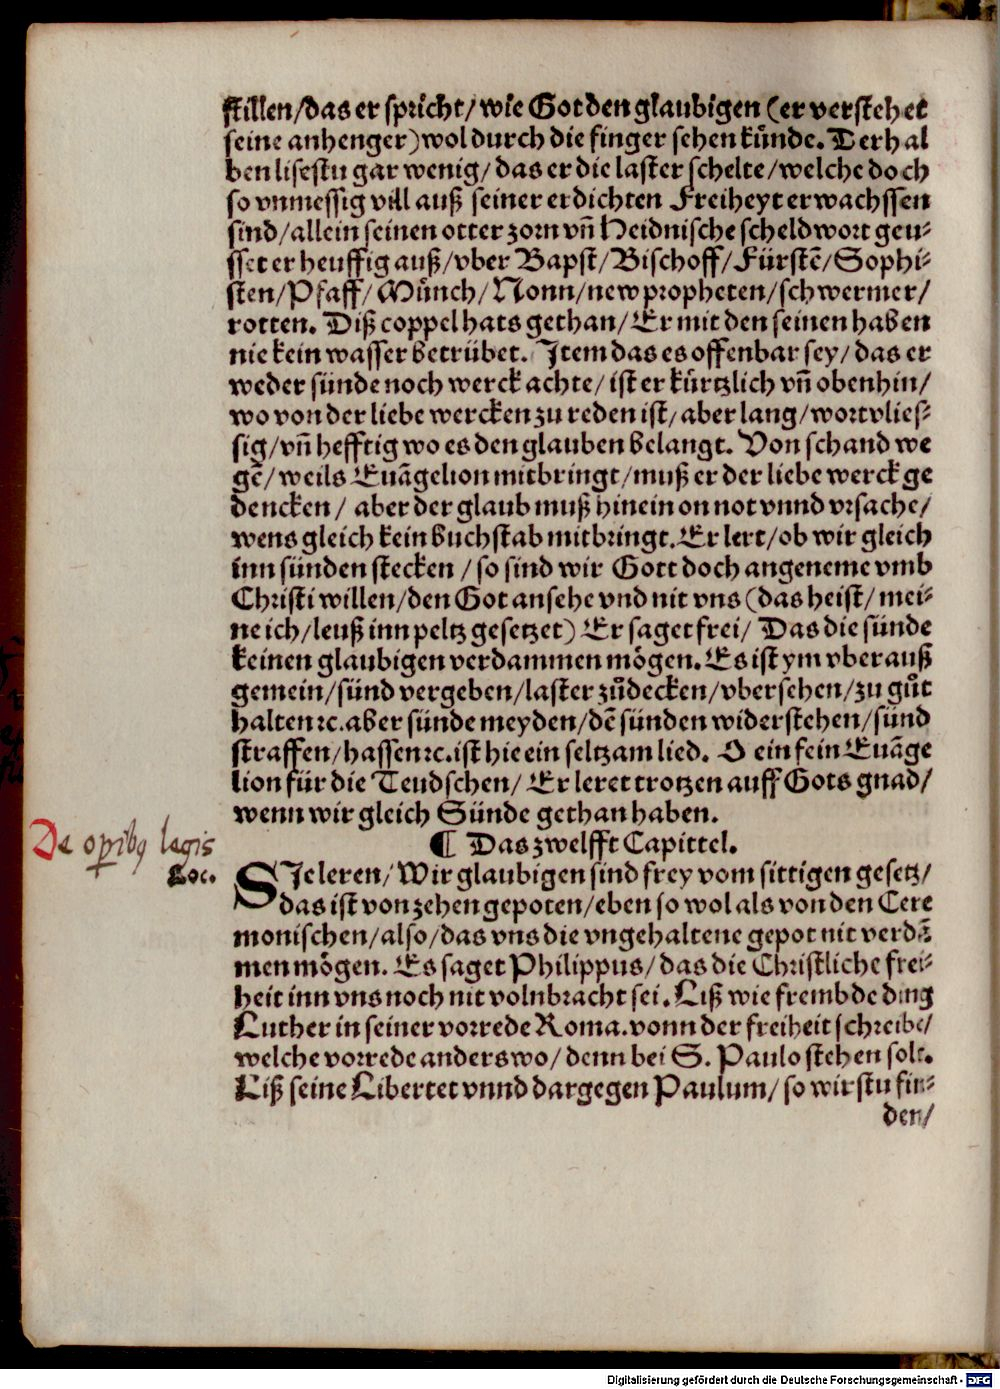 stillen/das er spricht/wie Got den glaubigen (er verstehet
seine anhenger) wol durch die finger sehen kůnde. Derhal
ben lisestu gar wenig/das er die laster schelte/welche doch
so vnmessig vill auß seiner erdichten Freiheyt erwachssen
sind/allein seinen otter zorn vñ Heidnische scheldwort geu⸗
sset er heuffig auß/vber Bapst/Bischoff/Fürstē/Sophi⸗
sten/Pfaff/Můnch/Nonn/new propheten/schwermer/
rotten. Diß coppel hats gethan/Er mit den seinen haben
nie kein wasser betrübet. Item das es offenbar sey/das er
weder sünde noch werck achte/ist er kürtzlich vñ obenhin/
wo von der liebe wercken zu reden ist/aber lang/wortvlies⸗
sig/vñ hefftig wo es den glauben belangt. Von schand we
gē/weils Euāgelion mitbringt/muß er der liebe werck ge
dencken/ aber der glaub muß hinein on not vnnd vrsache/
wens gleich kein buchstab mitbringt. Er lert/ob wir gleich
inn sünden stecken/so sind wir Gott doch angeneme vmb
Christi willen/den Got ansehe vnd nit vns (das heist/mei⸗
ne ich/leuß inn peltz gesetzet) Er saget frei/ Das die sünde
keinen glaubigen verdammen mögen. Es ist ym vberauß
gemein/sünd vergeben/laster zůdecken/vbersehen/zu gůt
halten ꝛc. aber sünde meyden/dē sünden widerstehen/sünd
straffen/hassen ꝛc. ist hie ein seltzam lied. O ein fein Euāge
lion für die Teudschen/ Er leret trotzen auff Gots gnad/
wenn wir gleich Sünde gethan haben.
¶ Das zwelfft Capittel.
De operibꝫ legis
Loc.
SIe leren/Wir glaubigen sind frey vom sittigen gesetz/
das ist von zehen gepoten/eben so wol als von den Cere
monischen/also/das vns die vngehaltene gepot nit verdā
men mögen. Es saget Philippus/das die Christliche frei⸗
heit inn vns noch nit volnbracht sei. Liß wie frembde ding
Luther in seiner vorrede Roma. vonn der freiheit schreibe/
welche vorrede anderswo/denn bei S. Paulo stehen solt.
Liß seine Libertet vnnd dargegen Paulum/so wirstu fin⸗
den/
Digitalisierung gefördert durch die Deutsche Forschungsgemeinschaft - DFG